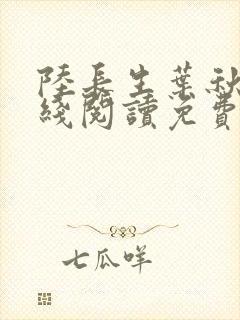 陸長生葉秋
綫閱讀免費
七瓜咩